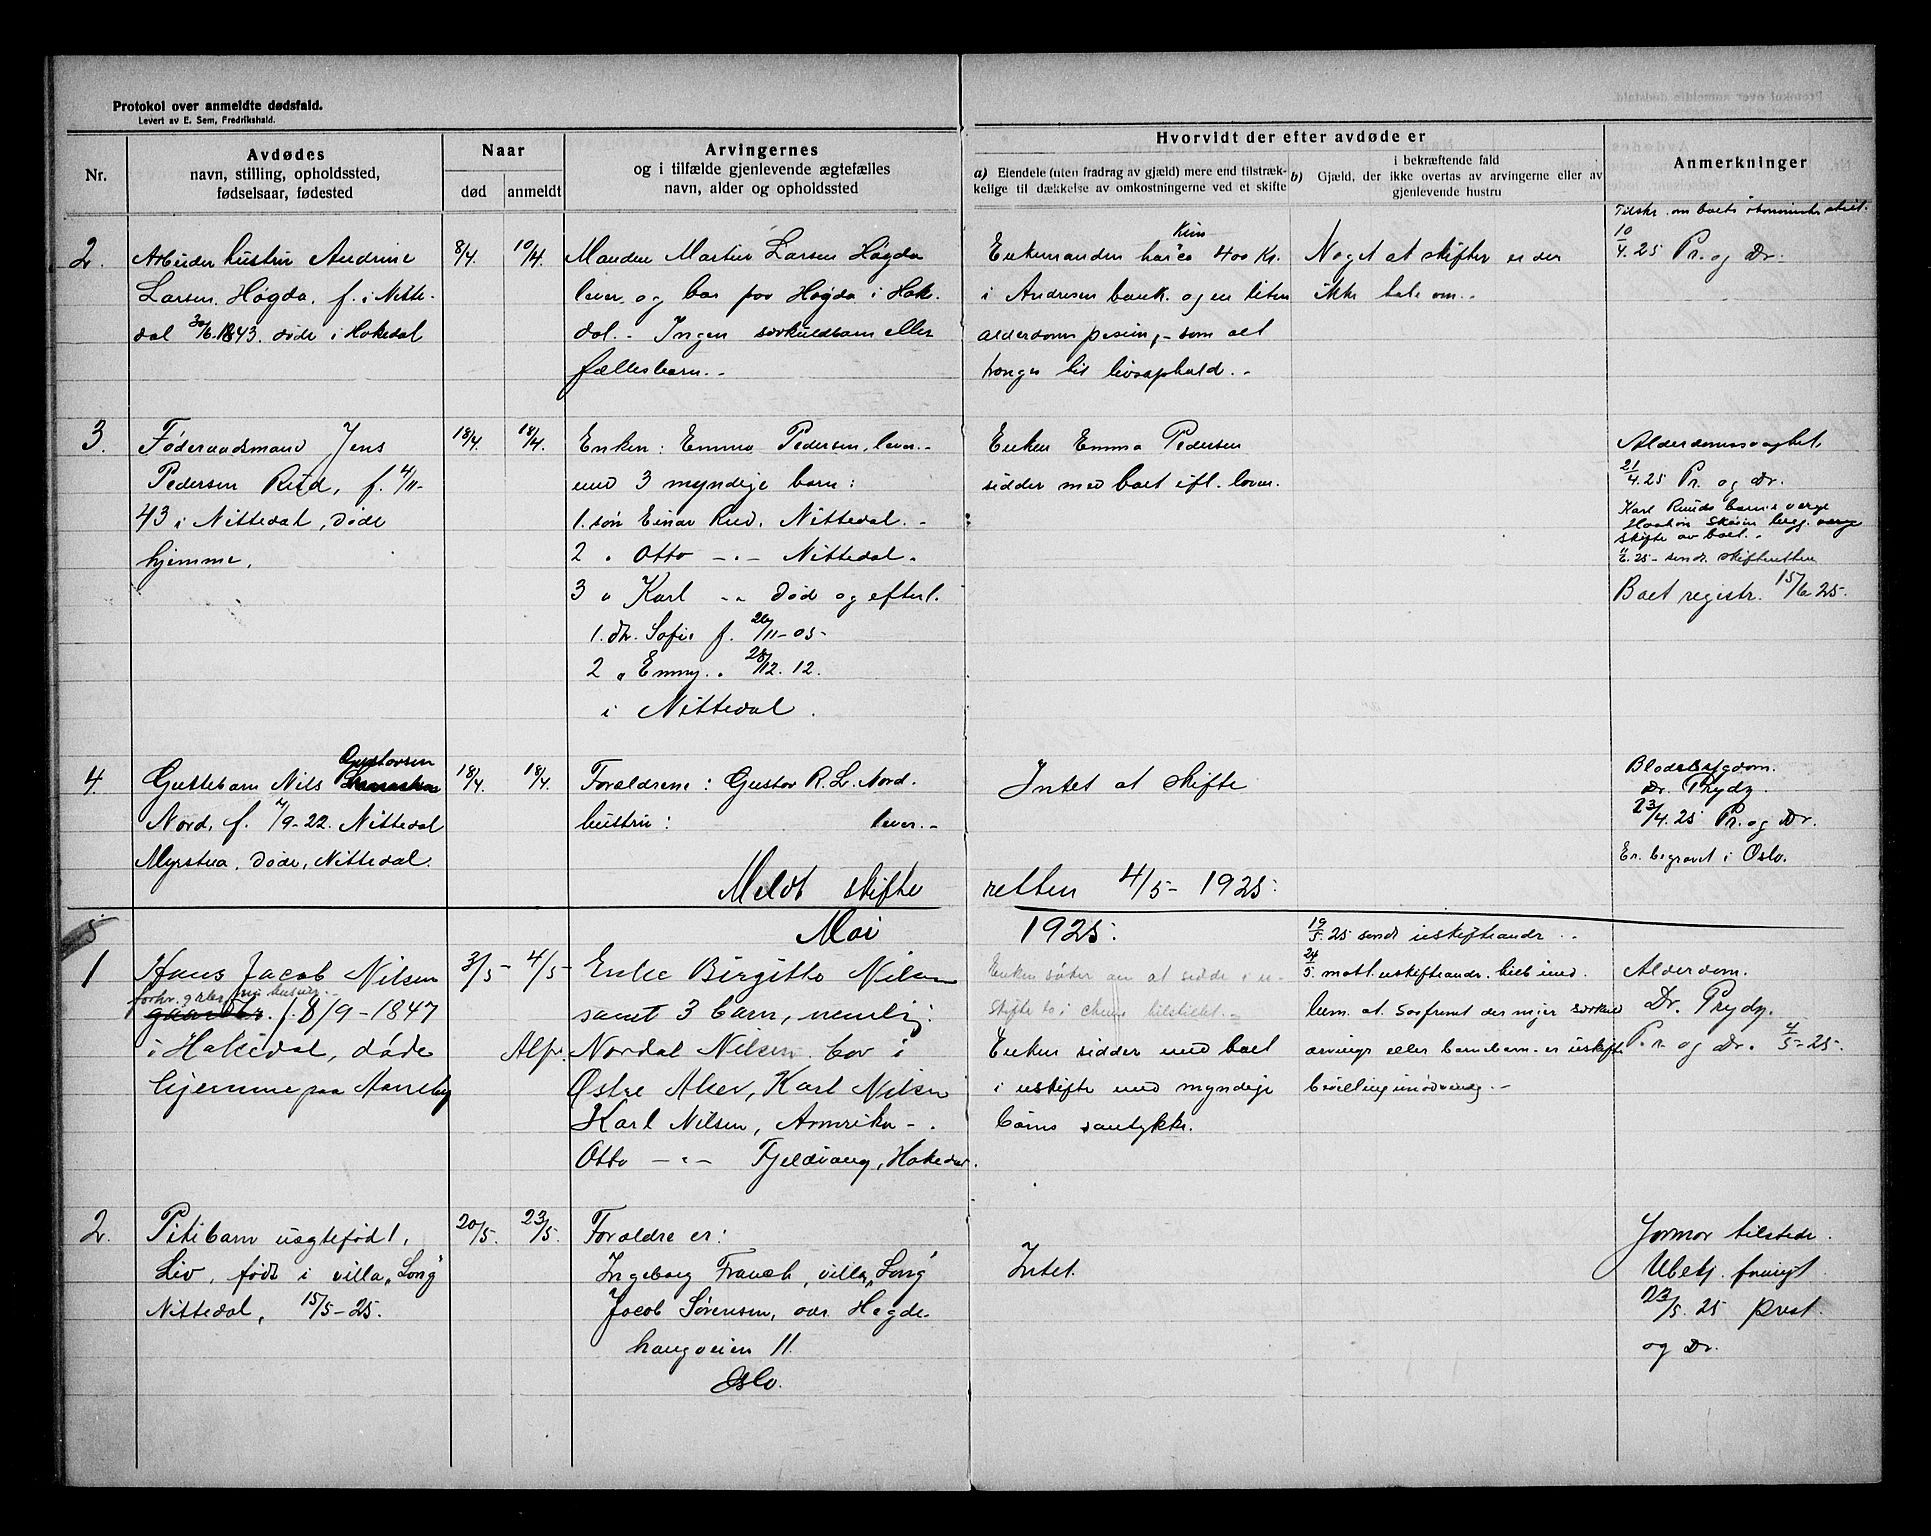 Protokol over anmeldte dødsfald.
Levert av E. Sem, Fredrikshald.
Nr.
Avdødes
navn, stilling, opholdssted,
fødselsaar, fødested
Naar
død
anmeldt
Arvingernes
og i tilfælde gjenlevende ægtefælles
navn, alder og opholdssted
Hvorvidt der efter avdøde er
a) Eiendele (uten fradrag av gjæld) mere end tilstræk-
kelige til dækkelse av omkostningerne ved et skifte
i bekræftende fald
b) Gjæld, der ikke overtas av arvingerne eller av
gjenlevende hustru
Anmerkninger
2.
Arbeider hustru Andrine
Larsen Høgda. f. i Nitte-
dal 30/6. 1843. døde i Hakedal
8/4.
10/4.
Manden Martin Larsen Høgda
lever og bor paa Høgda i Hak.
dal. - Ingen særkuldbarn eller
fællesbarn. -
Kun
Enkemanden har ca 400 Kr.
i Andresen bank. og en liten
alderdoms pesion, - som alt
trenges til livsophold. -
Noget at skifter er der
ikke tale om. -
10/4. 25 Pr. og Dr.
3.
Føderaadsmand Jens
Pedersen Rud, f. 4/11-
43 i Nittedal, døde
hjemme.
18/4.
18/4.
Enken: Emma Pedersen, lever. -
med 3 myndige barn:
1. søn Einar Rud. Nittedal. -
2 " Otto - " - Nittedal -
3 " Karl - " død og efterl.
1. dtr. Sofie f. 26/11-05-
2 " Emmy. " 28/12. 12.
i Nittedal.
Enken Emma Pedersen
sidder med boet ifl. loven.
Alderdomssvaghet.
21/4. 25 Pr. og Dr.
Karl Ruuds barns verge
Haakon begj.
skifte av boet. -
25 - sendt skifteretten
Boet registr. 15/6 25.
4.
Gustavsen
Guttebarn Nils
Nord, f. 4/9-22. Nittedal
Myrstua, døde, Nittedal.
18/4.
18/4.
Forældrene: Gustav R. L. Nord.
hustru: lever. -
Intet at skifte
Blodsbygdom.
Dr. Prydz.
23/4. 25 Pr. og Dr.
Er begravet i Oslo.
Meldt skifte retten 4/5 - 1925.
5
Mai 1925.
1
Hans Jacob Nilsen
gaardbr. f. 8/9 - 1847
i Hakedal, døde
hjemme paa Aaneby
3/5-
4/5-
Enke Birgitte Nilsen
samt 3 barn, nemlig:
Alfr. Nordal Nilsen bor i
Østre Aker, Karl Nilsen
Karl Nilsen, Amerika - .
Otto - " - Fjeldvang, Hakedal.
Enken søker om at sidde i u-
skifte
Enken sidder med boet
i uskifte med myndige
børns samtykke.
19/5. 25 sendt uskifteandr. -
24/5. mott. uskifteandr. tilb. med
bem. at saafremt der ei er særkuld
arvinger eller barnebarn er uskifte
bevilling unødvendig. -
Alderdom.
Dr. Prydz.
Pr. og Dr. 4/5-25.
2.
Pikebarn uægtefødt,
Liv, født i villa "Solig"
Nittedal, 15/5-25.
20/5.
23/5.
Forældre er:
Ingeborg Franck, villa "Solig"
Jacob Sørensen, ovr. Hegde-
haugveien 11.
Oslo.
Intet.
Jormor tilstede.
Ubekj. forøvrigt
23/5. 25 prest
og Dr.